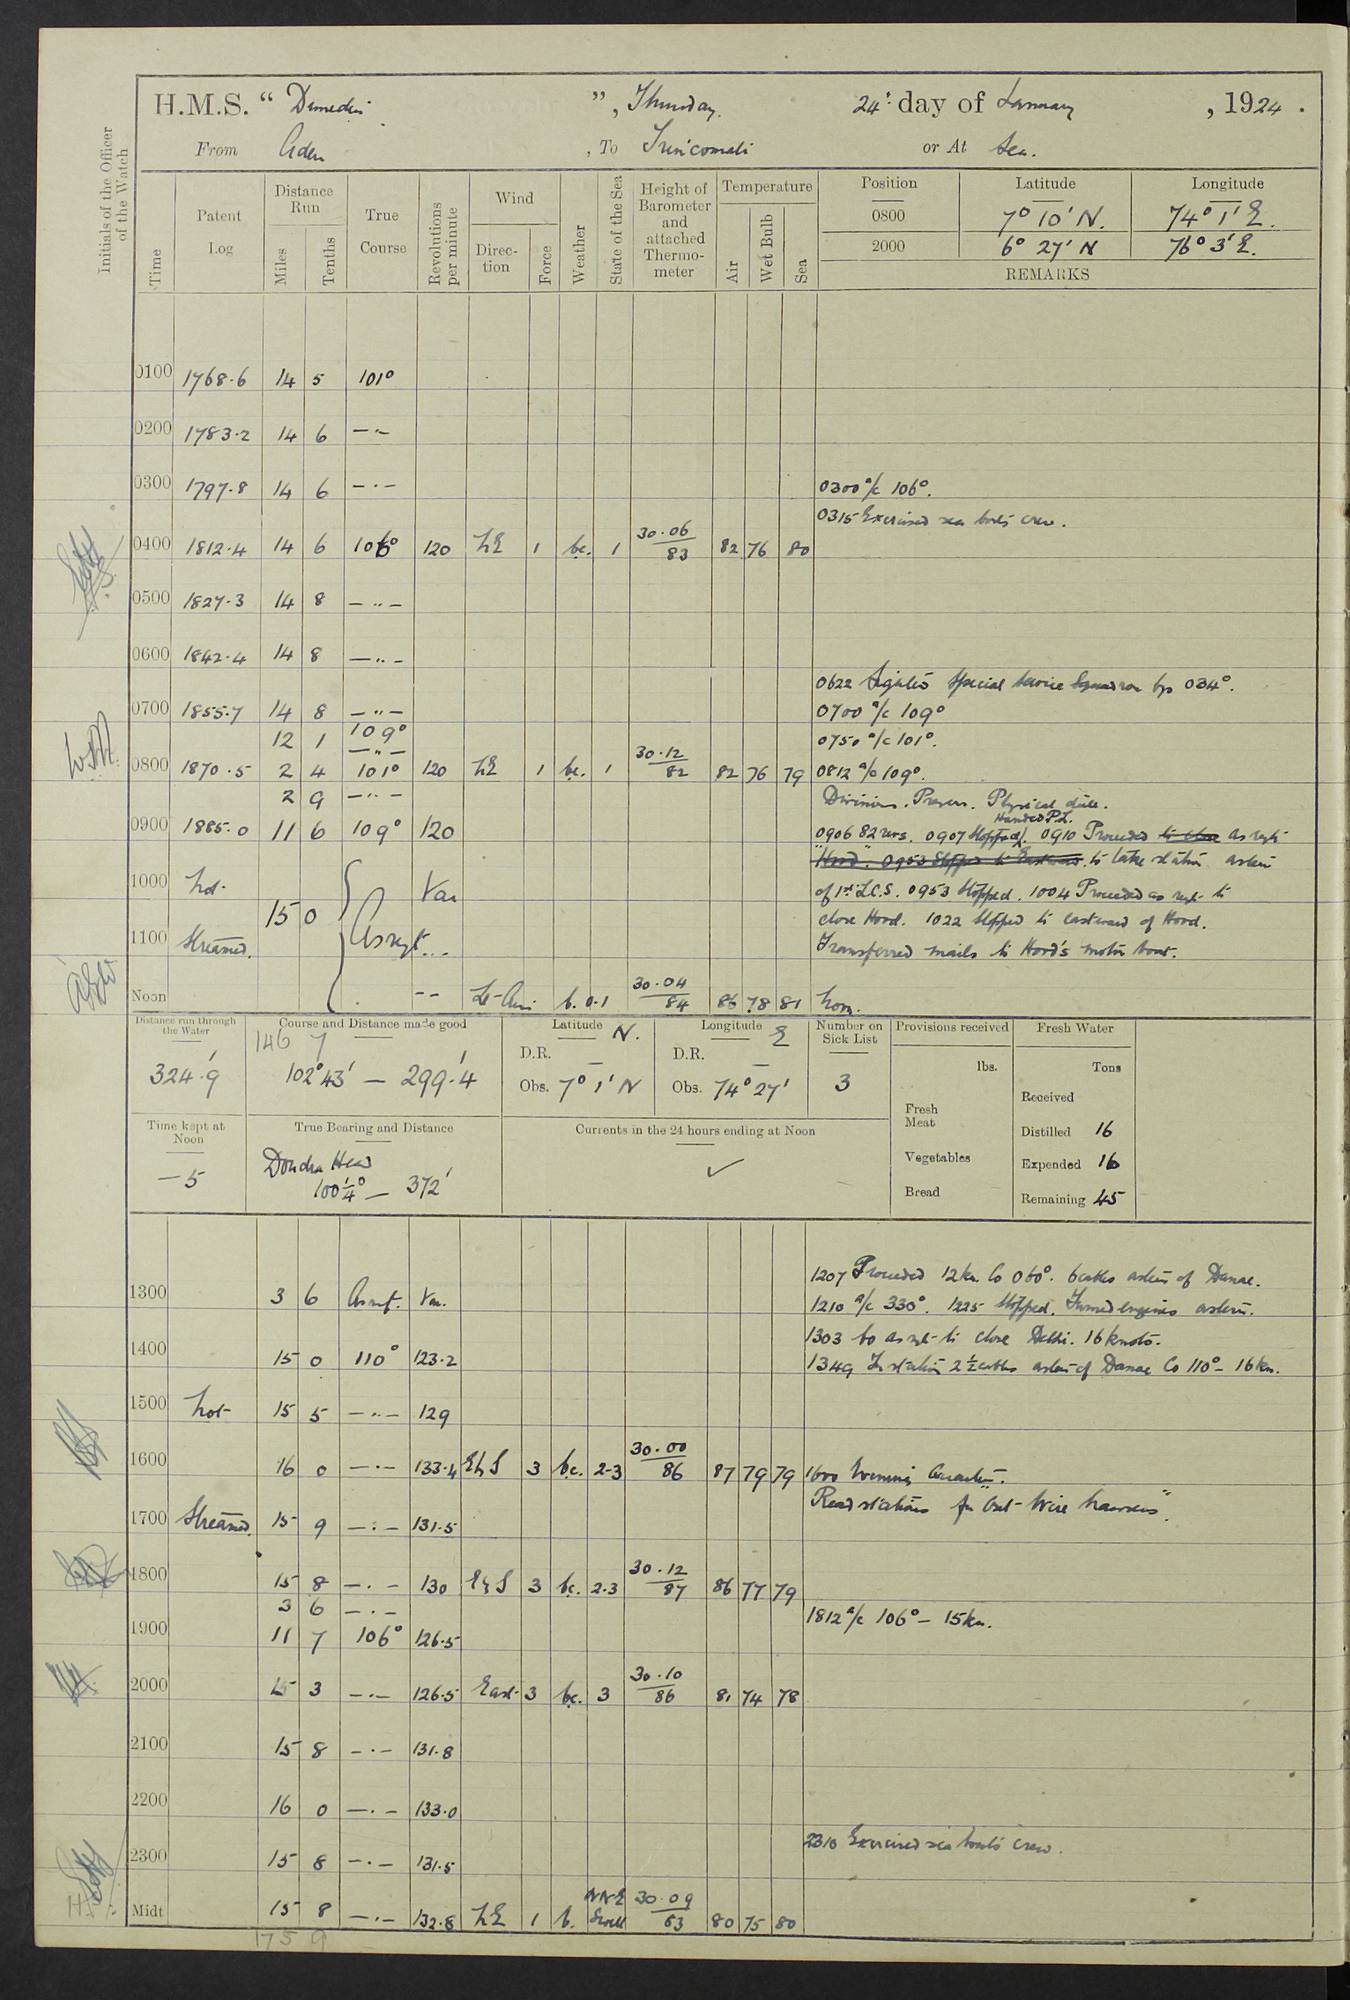 H.M.S. " Dunedin ", Thursday. 24th day of January, 1924.
From Aden, To Trincomali or At Sea.
Initials of the Officer of the Watch
Time
Patent Log
Distance Run
Miles
Tenths
True Course
Revolutions per minute
Wind
Direction
Force
Weather
State of the Sea
Height of Barometer and attached Thermometer
Temperature
Air
Wet Bulb
Sea
Position Latitude Longitude
0800 7° 10' N. 74° 1' E.
2000 6° 27' N 76° 3' E.
REMARKS
0100 1768.6 14 5 101°
0200 1783.2 14 6 — " —
0300 1797.8 14 6 — " — 0300 a/c 106°.
0315 Exercised sea boats crew.
0400 1812.4 14 6 106° 120 NE 1 bc. 1 30.06 / 83 82 76 80
0500 1827.3 14 8 — " —
0600 1842.4 14 8 — " —
0622 Sighted Special Service Squadron bg 034°.
0700 1855.7 14 8 — " — 0700 a/c 109°
12 1 109° 0750 a/c 101°.
— " —
0800 1870.5 2 4 101° 120 NE 1 bc. 1 30.12 / 82 82 76 79 0812 a/c 109°.
2 9 — " — Divisions. Prayers. Physical drill.
Handed P.L.
0900 1885.0 11 6 109° 120 0906 82 revs. 0907 Stopped. 0910 Proceeded to close as reqte
"Hood". 0953 Stopped to Eastward to take station astern
1000 Not. Var of 1st L.C.S. 0953 Stopped. 1004 Proceeded as reqt to
15 0 close Hood. 1022 Stopped to eastward of Hood.
1100 Streamed. As reqt. Transferred mails to Hood's motor boat.
Noon -- Lt-Airs b. 0.1 30.04 / 84 86 78 81
Distance run through the Water
324'.9
Course and Distance made good
146 7
102° 43' — 299'.4
Latitude N.
D.R. —
Obs. 7° 1' N
Longitude E
D.R. —
Obs. 74° 27'
Number on Sick List
3
Provisions received
lbs.
Fresh Meat
Vegetables
Bread
Fresh Water
Tons
Received
Distilled 16
Expended 16
Remaining 45
Time kept at Noon
— 5
True Bearing and Distance
Dondra Head
100 1/4° — 372'
Currents in the 24 hours ending at Noon
✓
1207 Proceeded 12 kn. Co 060°. 6 cables astern of Danae.
1300 3 6 As reqt. Var. 1210 a/c 330°. 1225 Stopped. Turned engines astern.
1303 Co as reqt to close Delhi. 16 knots.
1400 15 0 110° 123.2 1349 In station 2 1/2 cables astern of Danae Co 110° — 16 kn.
1500 Not 15 5 — " — 129
1600 16 0 — " — 133.4 E b S 3 bc. 2-3 30.00 / 86 87 79 79 1600 Evening Quarters.
Read stations for "Out Wire hawsers".
1700 Streamed. 15 9 — " — 131.5
1800 15 8 — " — 130 E b S 3 bc. 2.3 30.12 / 87 86 77 79
3 6 — " — 1812 a/c 106° — 15 kn.
1900 11 7 106° 126.5
2000 15 3 — " — 126.5 East 3 bc. 3 30.10 / 86 81 74 78
2100 15 8 — " — 131.8
2200 16 0 — " — 133.0
2310 Exercised sea boat's crew.
2300 15 8 — " — 131.5
Midt 15 8 — " — 132.8 NE 1 b. NNE Swell 30.09 / 83 80 75 80
175 9